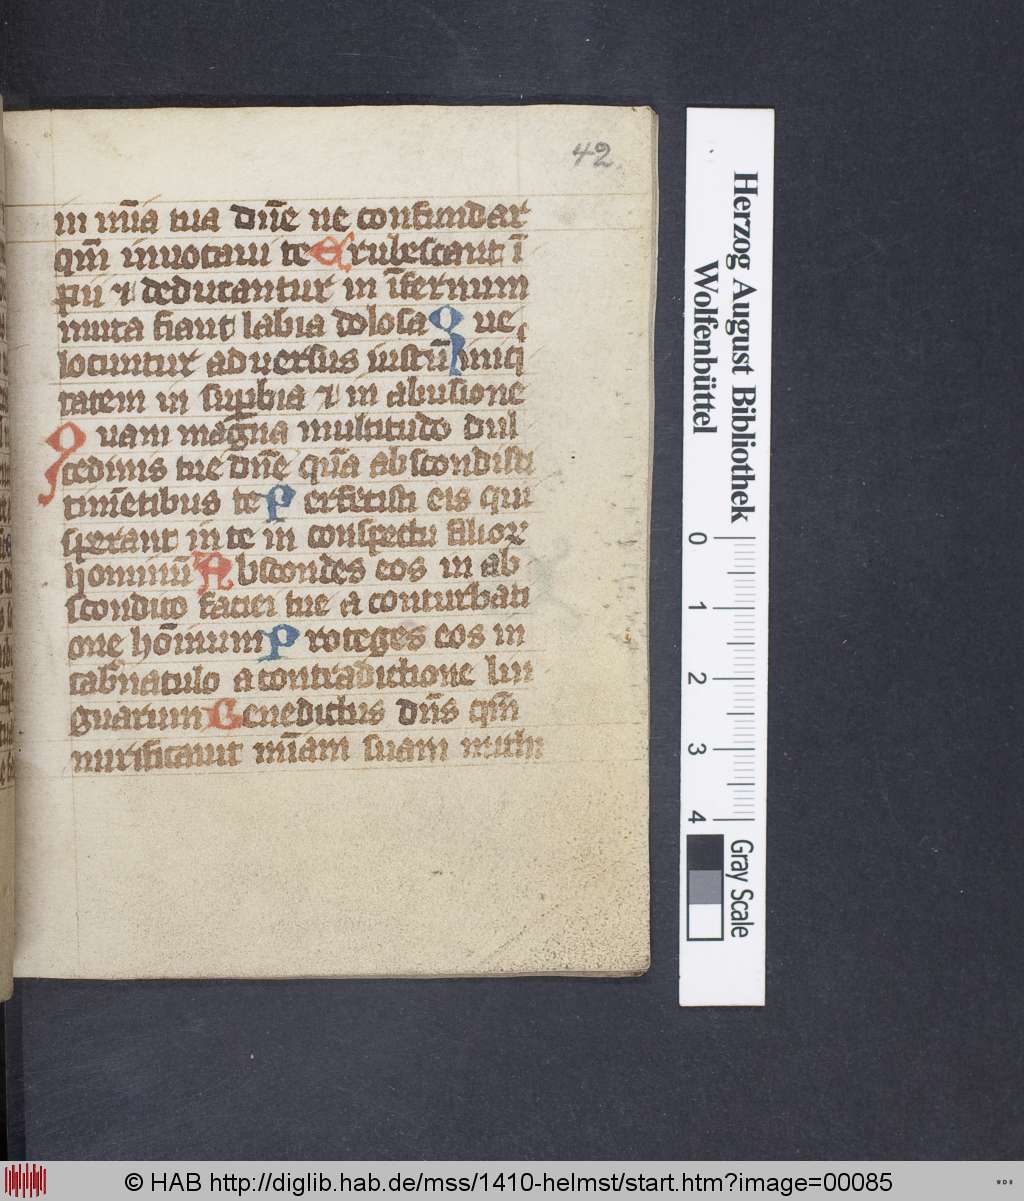 42
in mīa tua dn̄e ne confundar
qm̄ inuocaui te Erubescant ī
pii ⁊ deducantur in īfernum
muta fiant labia dolosa Que
locuntur aduersus iustū iniq
tatem in suꝑbia ⁊ in abusione
Quam magna multitudo dul
cedinis tue dn̄e qūa abscondisti
timētibus te Perfecisti eis qui
sperant in te in conspectu filioꝝ
hominū Abscondes eos in ab
scondito faciei tue a conturbati
one hōinum Proteges eos in
tab̄naculo a contradictione lin
guarum Benedictus dn̄s qm̄
mirificauit mīam suam michi
Herzog August Bibliothek
Wolfenbüttel
0 1 2 3 4
Gray Scale
© HAB http://diglib.hab.de/mss/1410-helmst/start.htm?image=00085